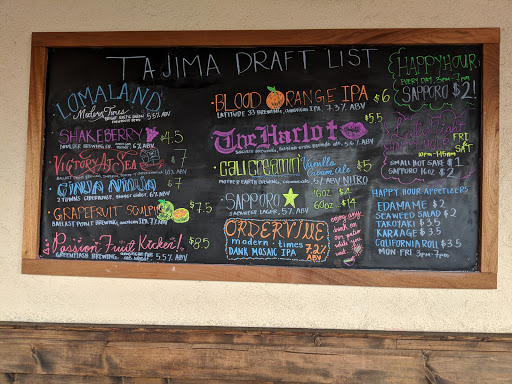 TAJIMA DRAFT LIST
LOMALAND
Modern Times
5.5% ABV
SHAKEBERRY $4.5
6% ABV
VICTORY AT SEA $7
$7
GRAPEFRUIT SCULPIN $7.5
BALLAST POINT BREWING, AMERICAN IPA, 7% ABV
Passion Fruit Kicker! $8.5
GREEN FLASH BREWING,
5.5% ABV
BLOOD ORANGE IPA $6
LATITUDE 33 BREWING, AMERICAN IPA, 7.3% ABV
The Harlot
5.6% ABV
CALI CREAMIN' Vanilla Cream Ale $5
MOTHER EARTH BREWING, 5.2% ABV NITRO
SAPPORO 16oz $4
60oz $14
JAPANESE LAGER, 5% ABV
ORDERVILLE
modern times 7.2%
DANK MOSAIC IPA ABV
enjoy any
drink on
our patio
while you
wait
HAPPY HOUR
EVERY DAY 3pm-7pm
SAPPORO $2!
FRI
SAT
SMALL HOT SAKE $1
SAPPORO 16oz $2
HAPPY HOUR APPETIZERS
EDAMAME $2
SEAWEED SALAD $2
TAKOYAKI $3.5
KARAAGE $3.5
CALIFORNIA ROLL $3.5
MON FRI 3pm-7pm